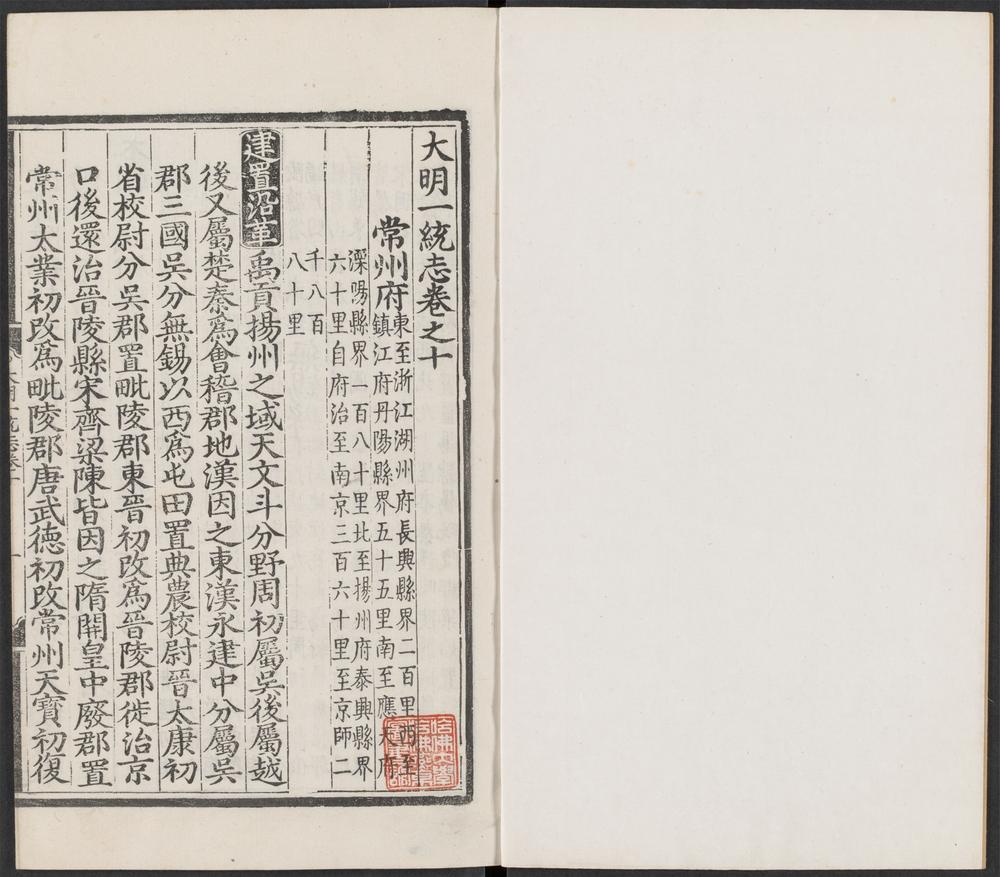 大明一統志卷之十
常州府東至浙江湖州府長興縣界二百里西至
鎮江府丹陽縣界五十五里南至應天府
溧陽縣界一百八十里北至揚州府泰興縣界
六十里自府治至南京三百六十里至京師二
千八百
八十里
建置沿革禹貢揚州之域天文斗分野周初屬吳後屬越
後又屬楚秦爲會稽郡地漢因之東漢永建中分屬吳
郡三國吳分無錫以西爲屯田置典農校尉晉太康初
省校尉分吳郡置毗陵郡東晉初改爲晉陵郡徙治京
口後還治晉陵縣宋齊梁陳皆因之隋開皇中廢郡置
常州大業初改爲毗陵郡唐武德初改常州天寶初復